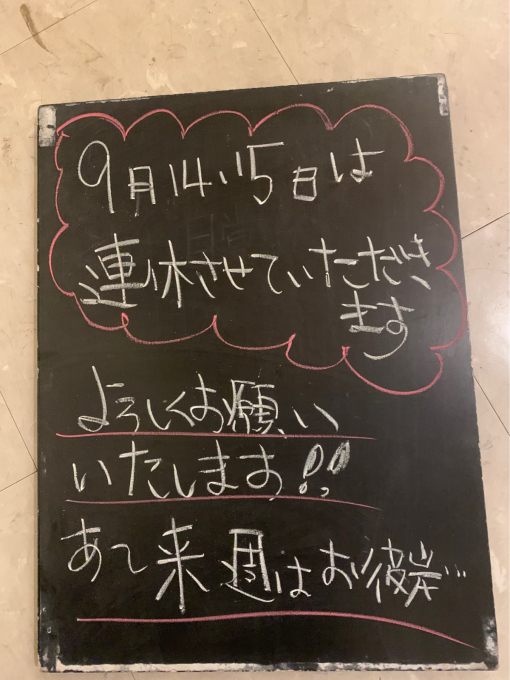 9月14.15日は
連休させていただき
ます
よろしくお願い
いたします!!
あと来週はお彼岸…